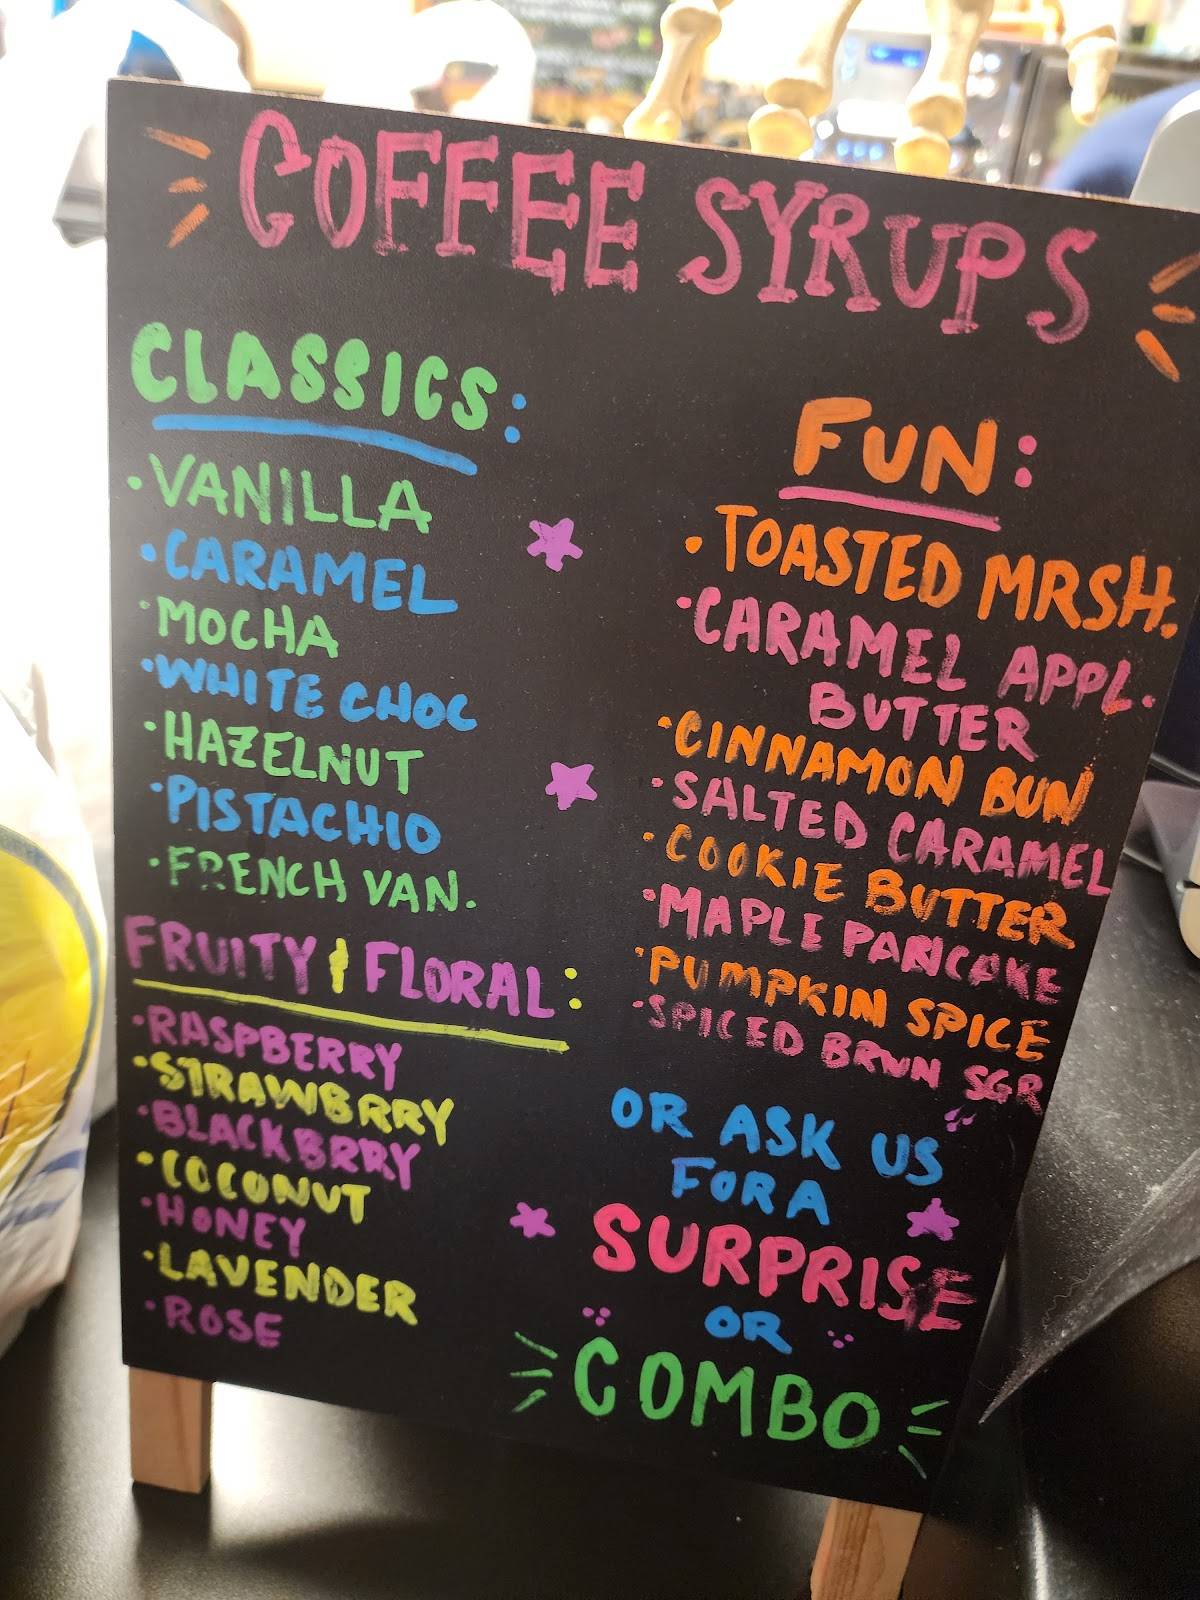 COFFEE SYRUPS
CLASSICS:
·VANILLA
·CARAMEL
·MOCHA
·WHITE CHOC
·HAZELNUT
·PISTACHIO
·FRENCH VAN.
FRUITY & FLORAL:
·RASPBERRY
·STRAWBRRY
·BLACKBRRY
·COCONUT
·HONEY
·LAVENDER
·ROSE
FUN:
·TOASTED MRSH.
·CARAMEL APPL.
BUTTER
·CINNAMON BUN
·SALTED CARAMEL
·COOKIE BUTTER
·MAPLE PANCAKE
·PUMPKIN SPICE
·SPICED BRWN SGR
OR ASK US
FOR A
SURPRISE
OR
COMBO